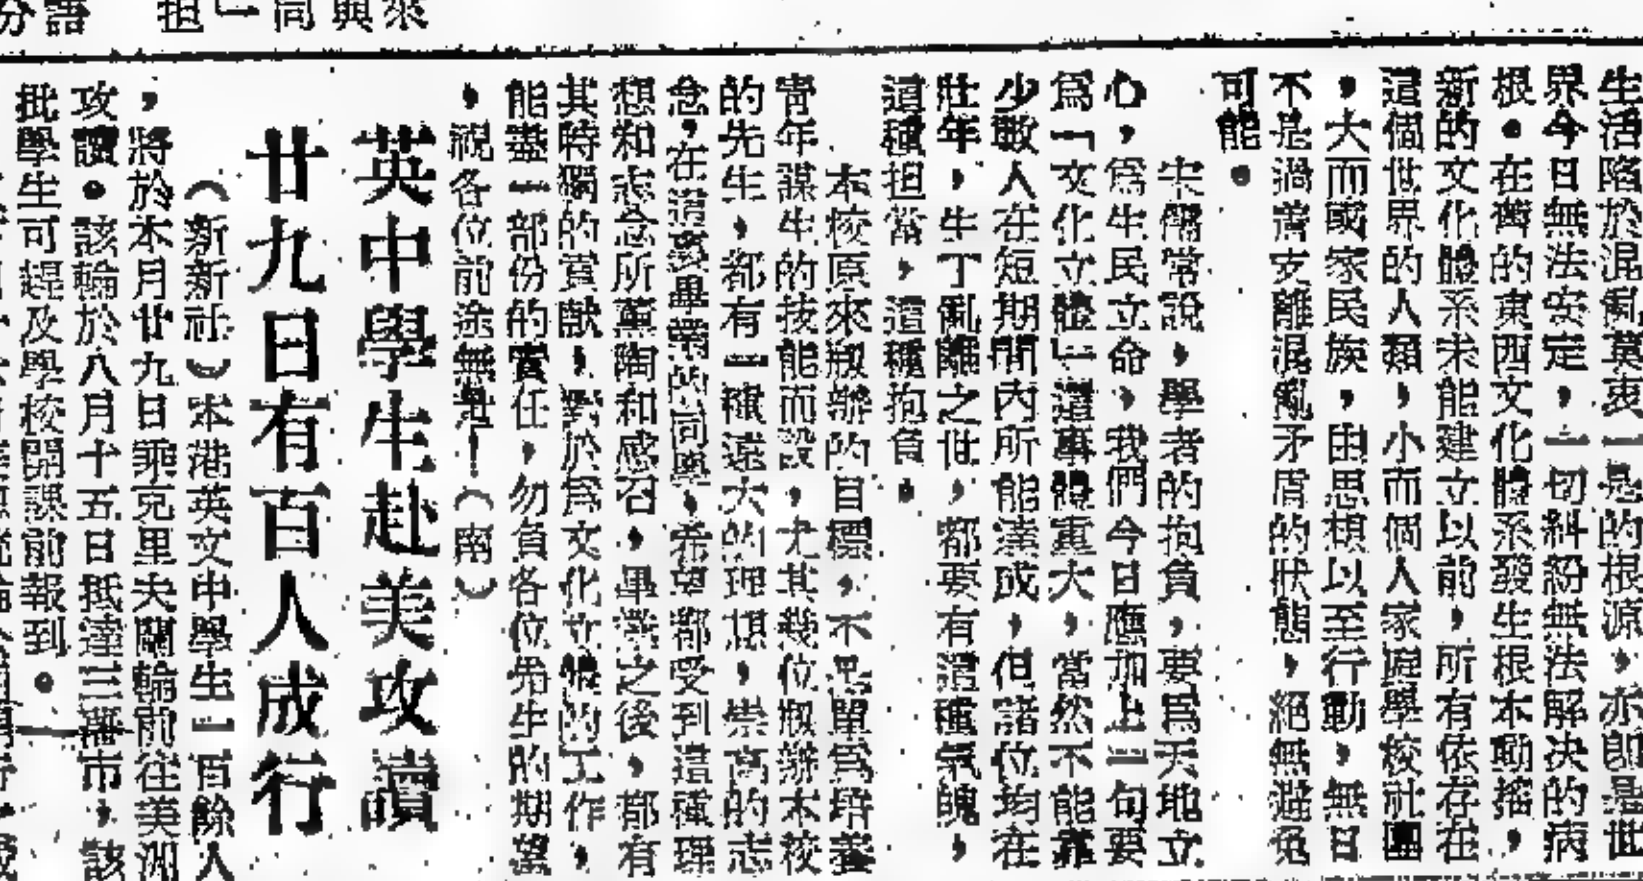 生活陷於混亂莫衷一是的根源，亦即是世
界今日無法安定，一切糾紛無法解決的病
根。在舊的東西文化體系發生根本動搖，
新的文化體系未能建立以前，所有依存在
這個世界的人類，小而個人家庭學校社團
，大而國家民族，由思想以至行動，無日
不是過着支離混亂矛盾的狀態，絕無避免
可能。
宋儒常說，學者的抱負，要爲天地立
心，爲生民立命，我們今日應加上一句要
爲「文化立體」這事體重大，當然不能靠
少數人在短期間内所能達成，但諸位均在
壯年，生丁亂離之世，都要有這種氣魄，
這種担當，這種抱負。
本校原來辦的目標，不是單爲培養
青年謀生的技能而設，尤其幾位辦本校
的先生，都有一種遠大的理想，崇高的志
念，在這裏畢業的同學，希望都受到這種理
想和志念所薰陶和感召，畢業之後，都有
其時獨的貢獻，對於爲文化立體的工作，
能盡一部份的責任，勿負各位先生的期望
，視各位前途無量！（南）
英中學生赴美攻讀
廿九日有百人成行
（新新社）本港英文中學生一百餘人
，將於本月廿九日乘克里夫蘭輪前往美洲
攻讀。該輪於八月十五日抵達三藩市，該
批學生可趕及學校開課前報到。